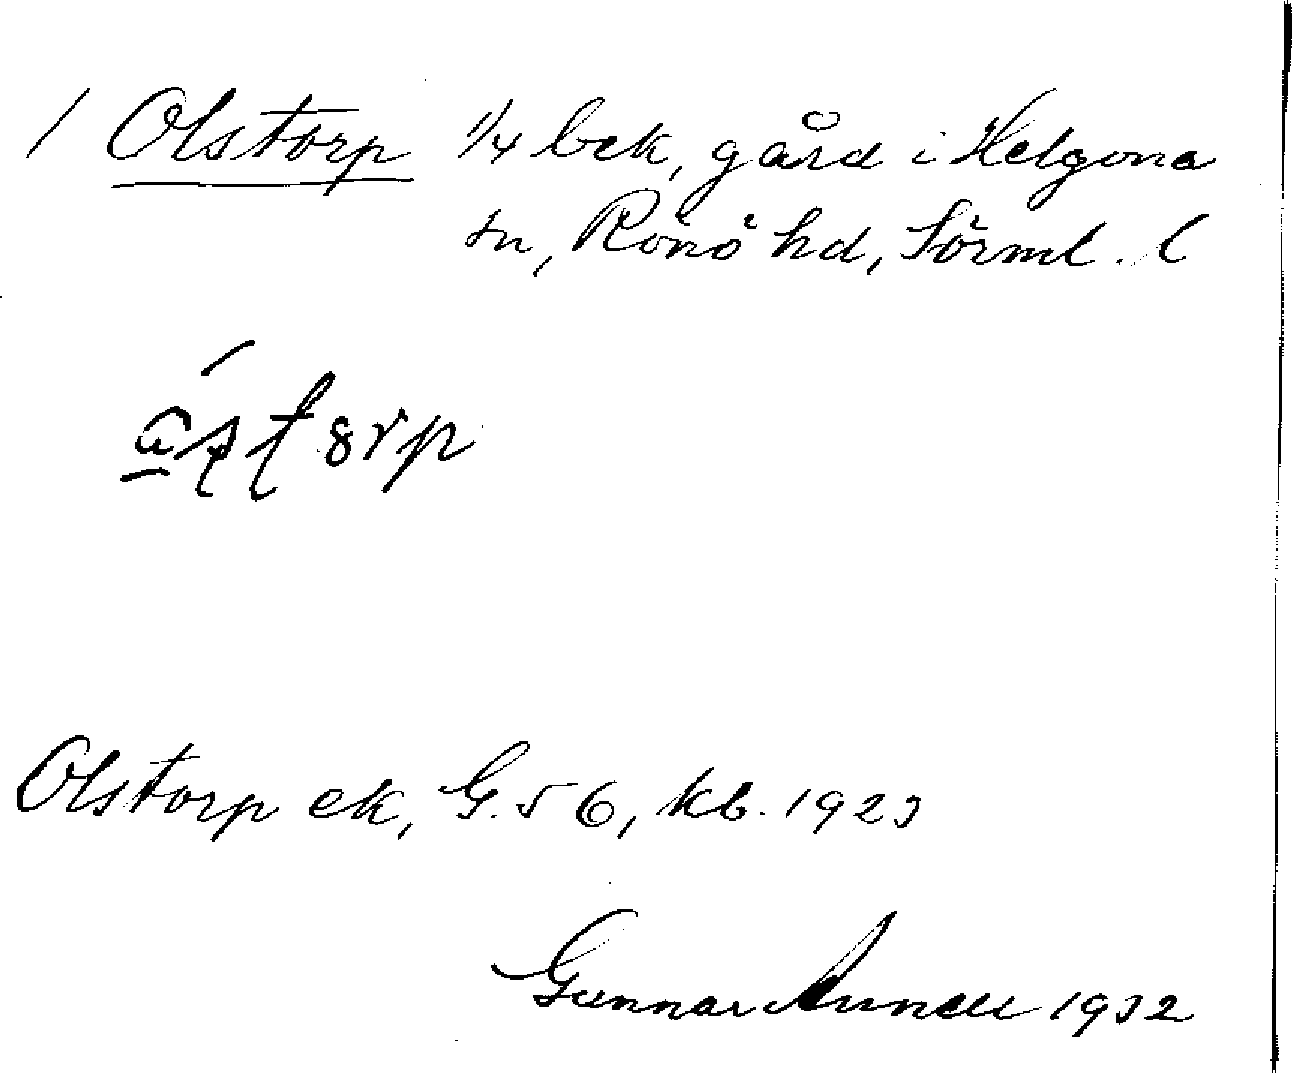 / Olstorp 1/4 bek, gård i Helgona
sn, Rönö hd, Sörml. l
Olstorp ek, G. 56, kb. 1923
Gunnar 1932